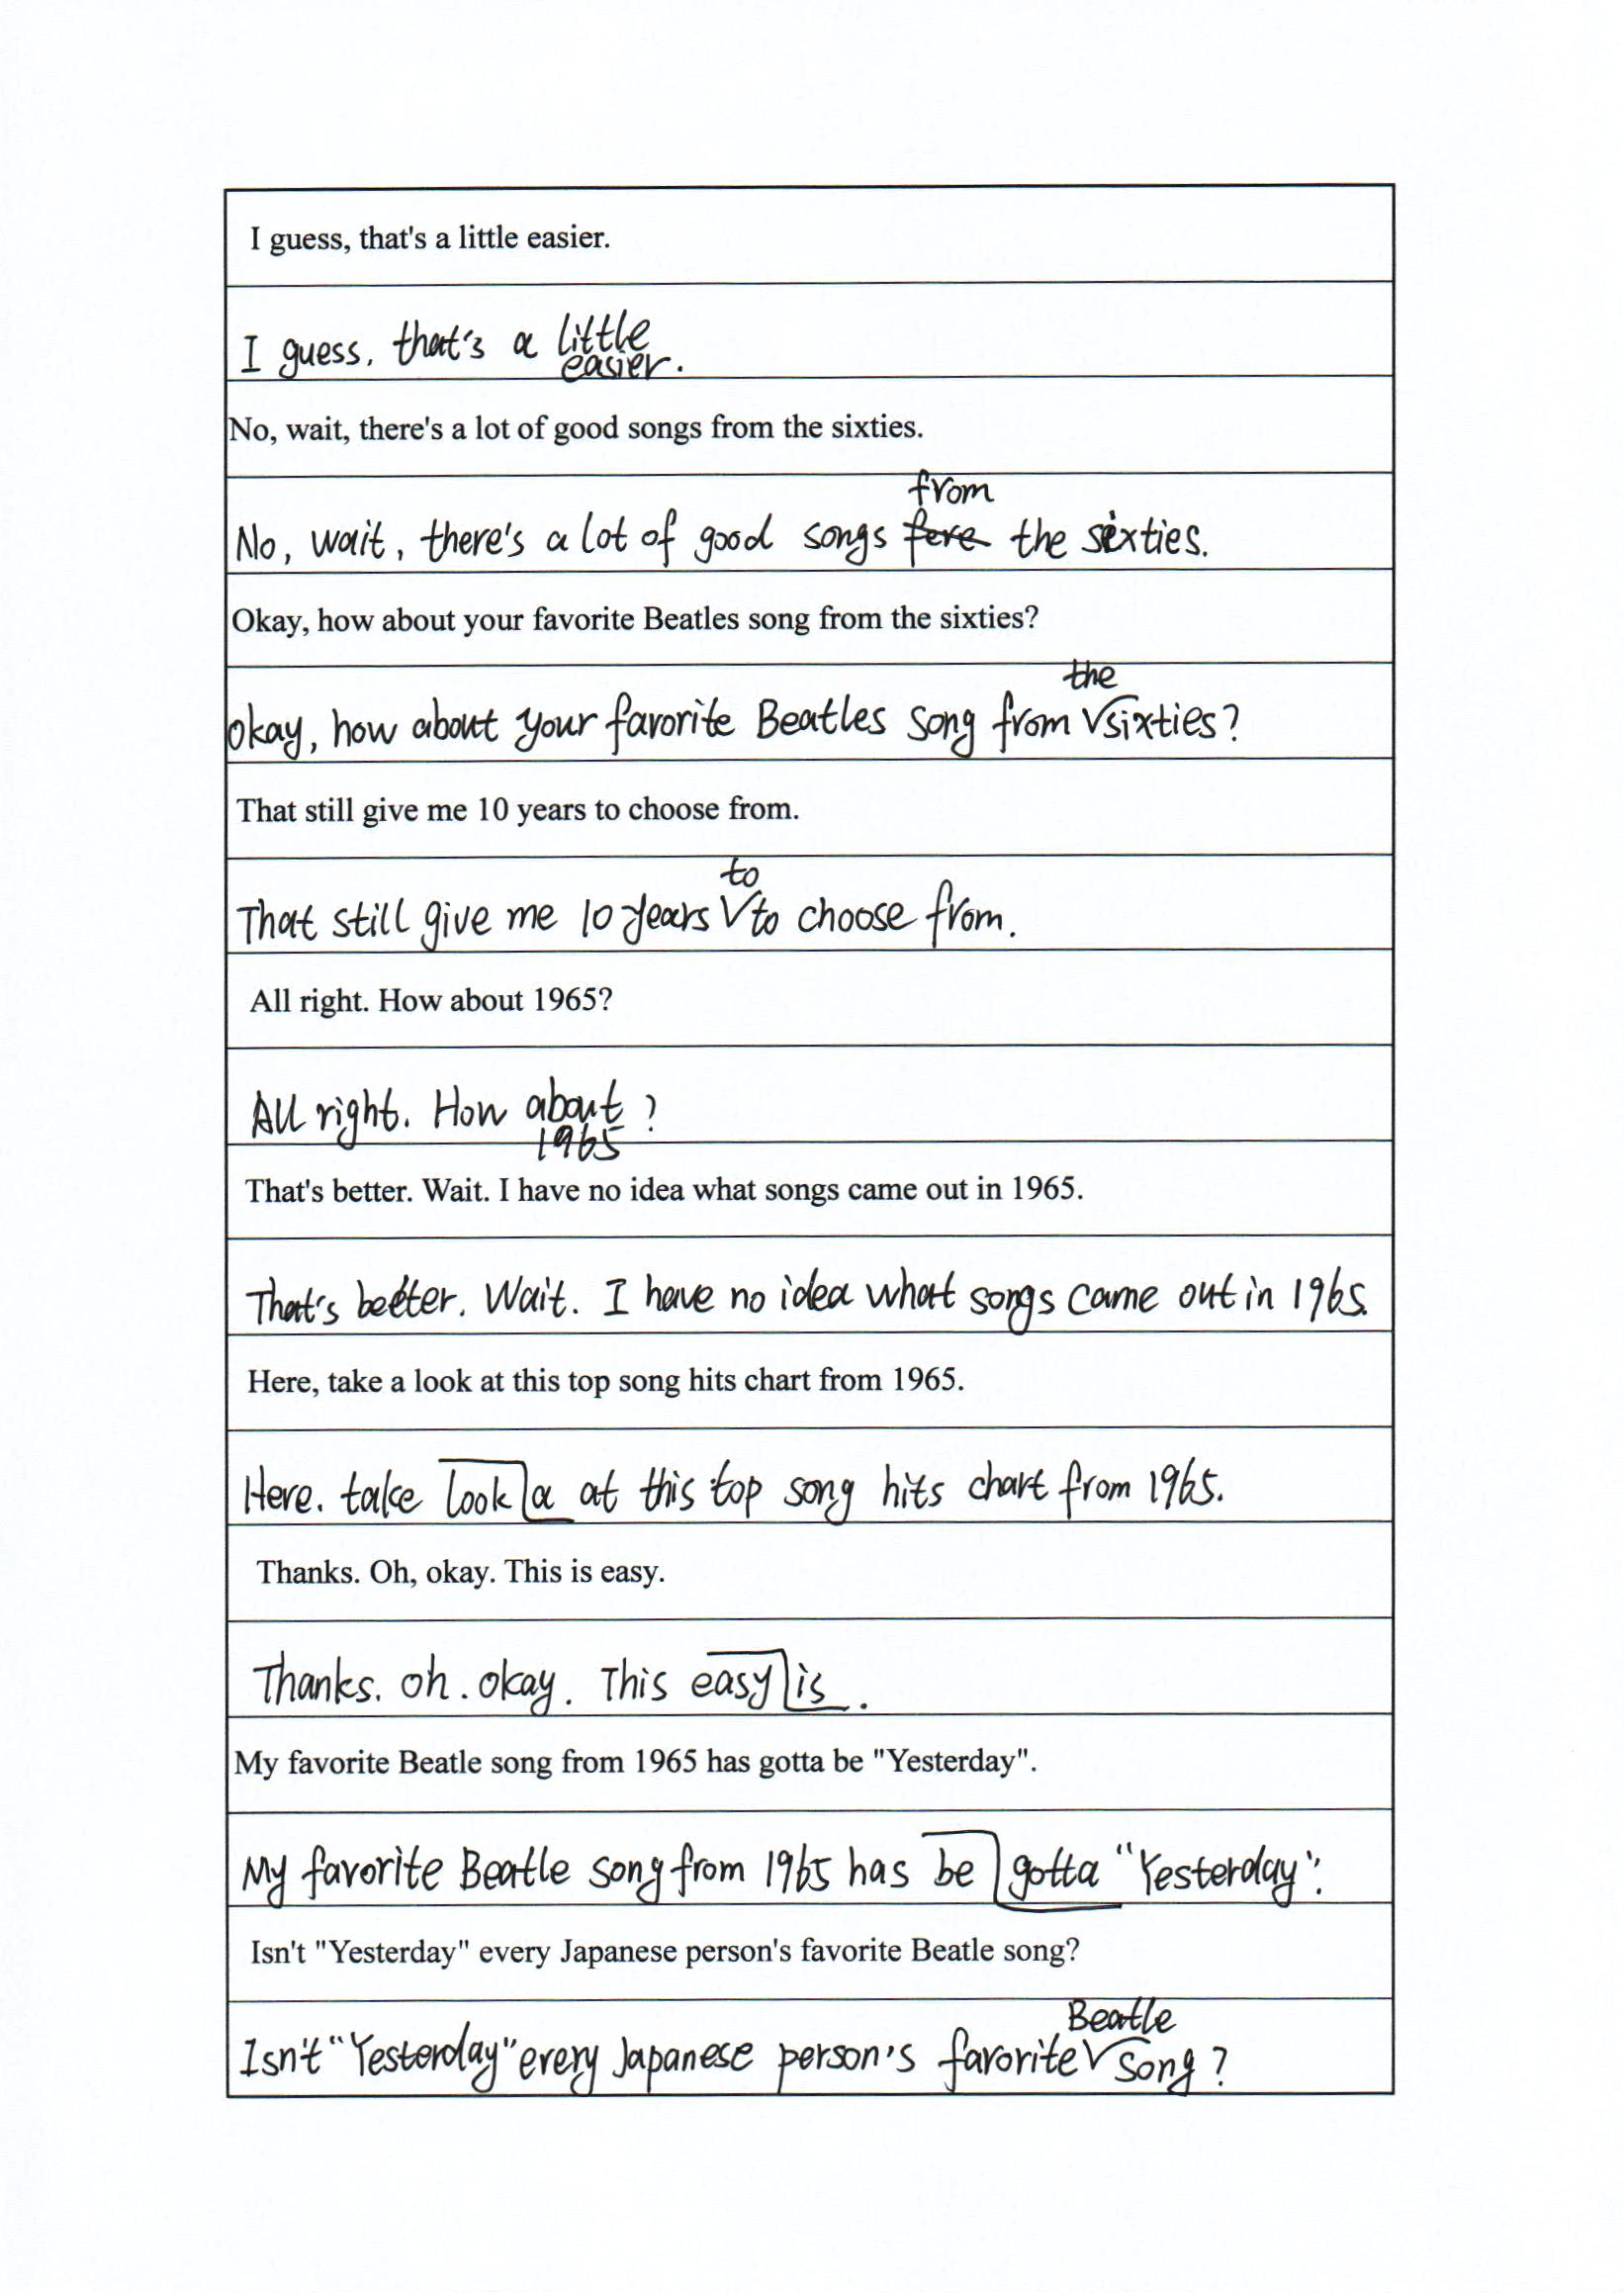 I guess, that's a little easier.
I guess. that's a little
easier.
No, wait, there's a lot of good songs from the sixties.
from
No, wait, there's a lot of good songs fere the sixties.
Okay, how about your favorite Beatles song from the sixties?
the
okay, how about your favorite Beatles song from sixties?
That still give me 10 years to choose from.
to
That still give me 10 years to choose from.
All right. How about 1965?
All right. How about ?
1965
That's better. Wait. I have no idea what songs came out in 1965.
That's better. Wait. I have no idea what songs came out in 1965.
Here, take a look at this top song hits chart from 1965.
Here. take look a at this top song hits chart from 1965.
Thanks. Oh, okay. This is easy.
Thanks. oh. okay. This easy is.
My favorite Beatle song from 1965 has gotta be "Yesterday".
My favorite Beatle song from 1965 has be gotta "Yesterday".
Isn't "Yesterday" every Japanese person's favorite Beatle song?
Beatle
Isn't "Yesterday" every Japanese person's favorite song?